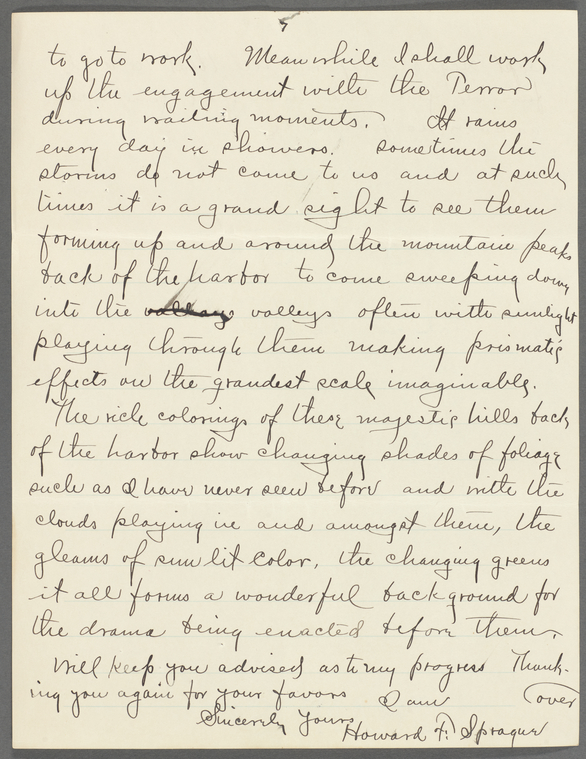 7
to go to work. Meanwhile I shall work
up the engagement with the Terror
during waiting moments. It rains
every day in showers. sometimes the
storms do not come to us and at such
times it is a grand sight to see them
forming up and around the mountain peaks
back of the harbor to come sweeping down
into the valleys often with sunlight
playing through them making prismatic
effects on the grandest scale imaginable.
The rich colorings of these majestic hills back
of the harbor show changing shades of foliage
such as I have never seen before and with the
clouds playing in and amongst them, the
gleams of sun lit color, the changing greens
it all forms a wonderful back ground for
the drama being enacted before them.
Will keep you advised as to my progress Thank-
ing you again for your favors I am (over
Sincerely Yours
Howard F. Sprague